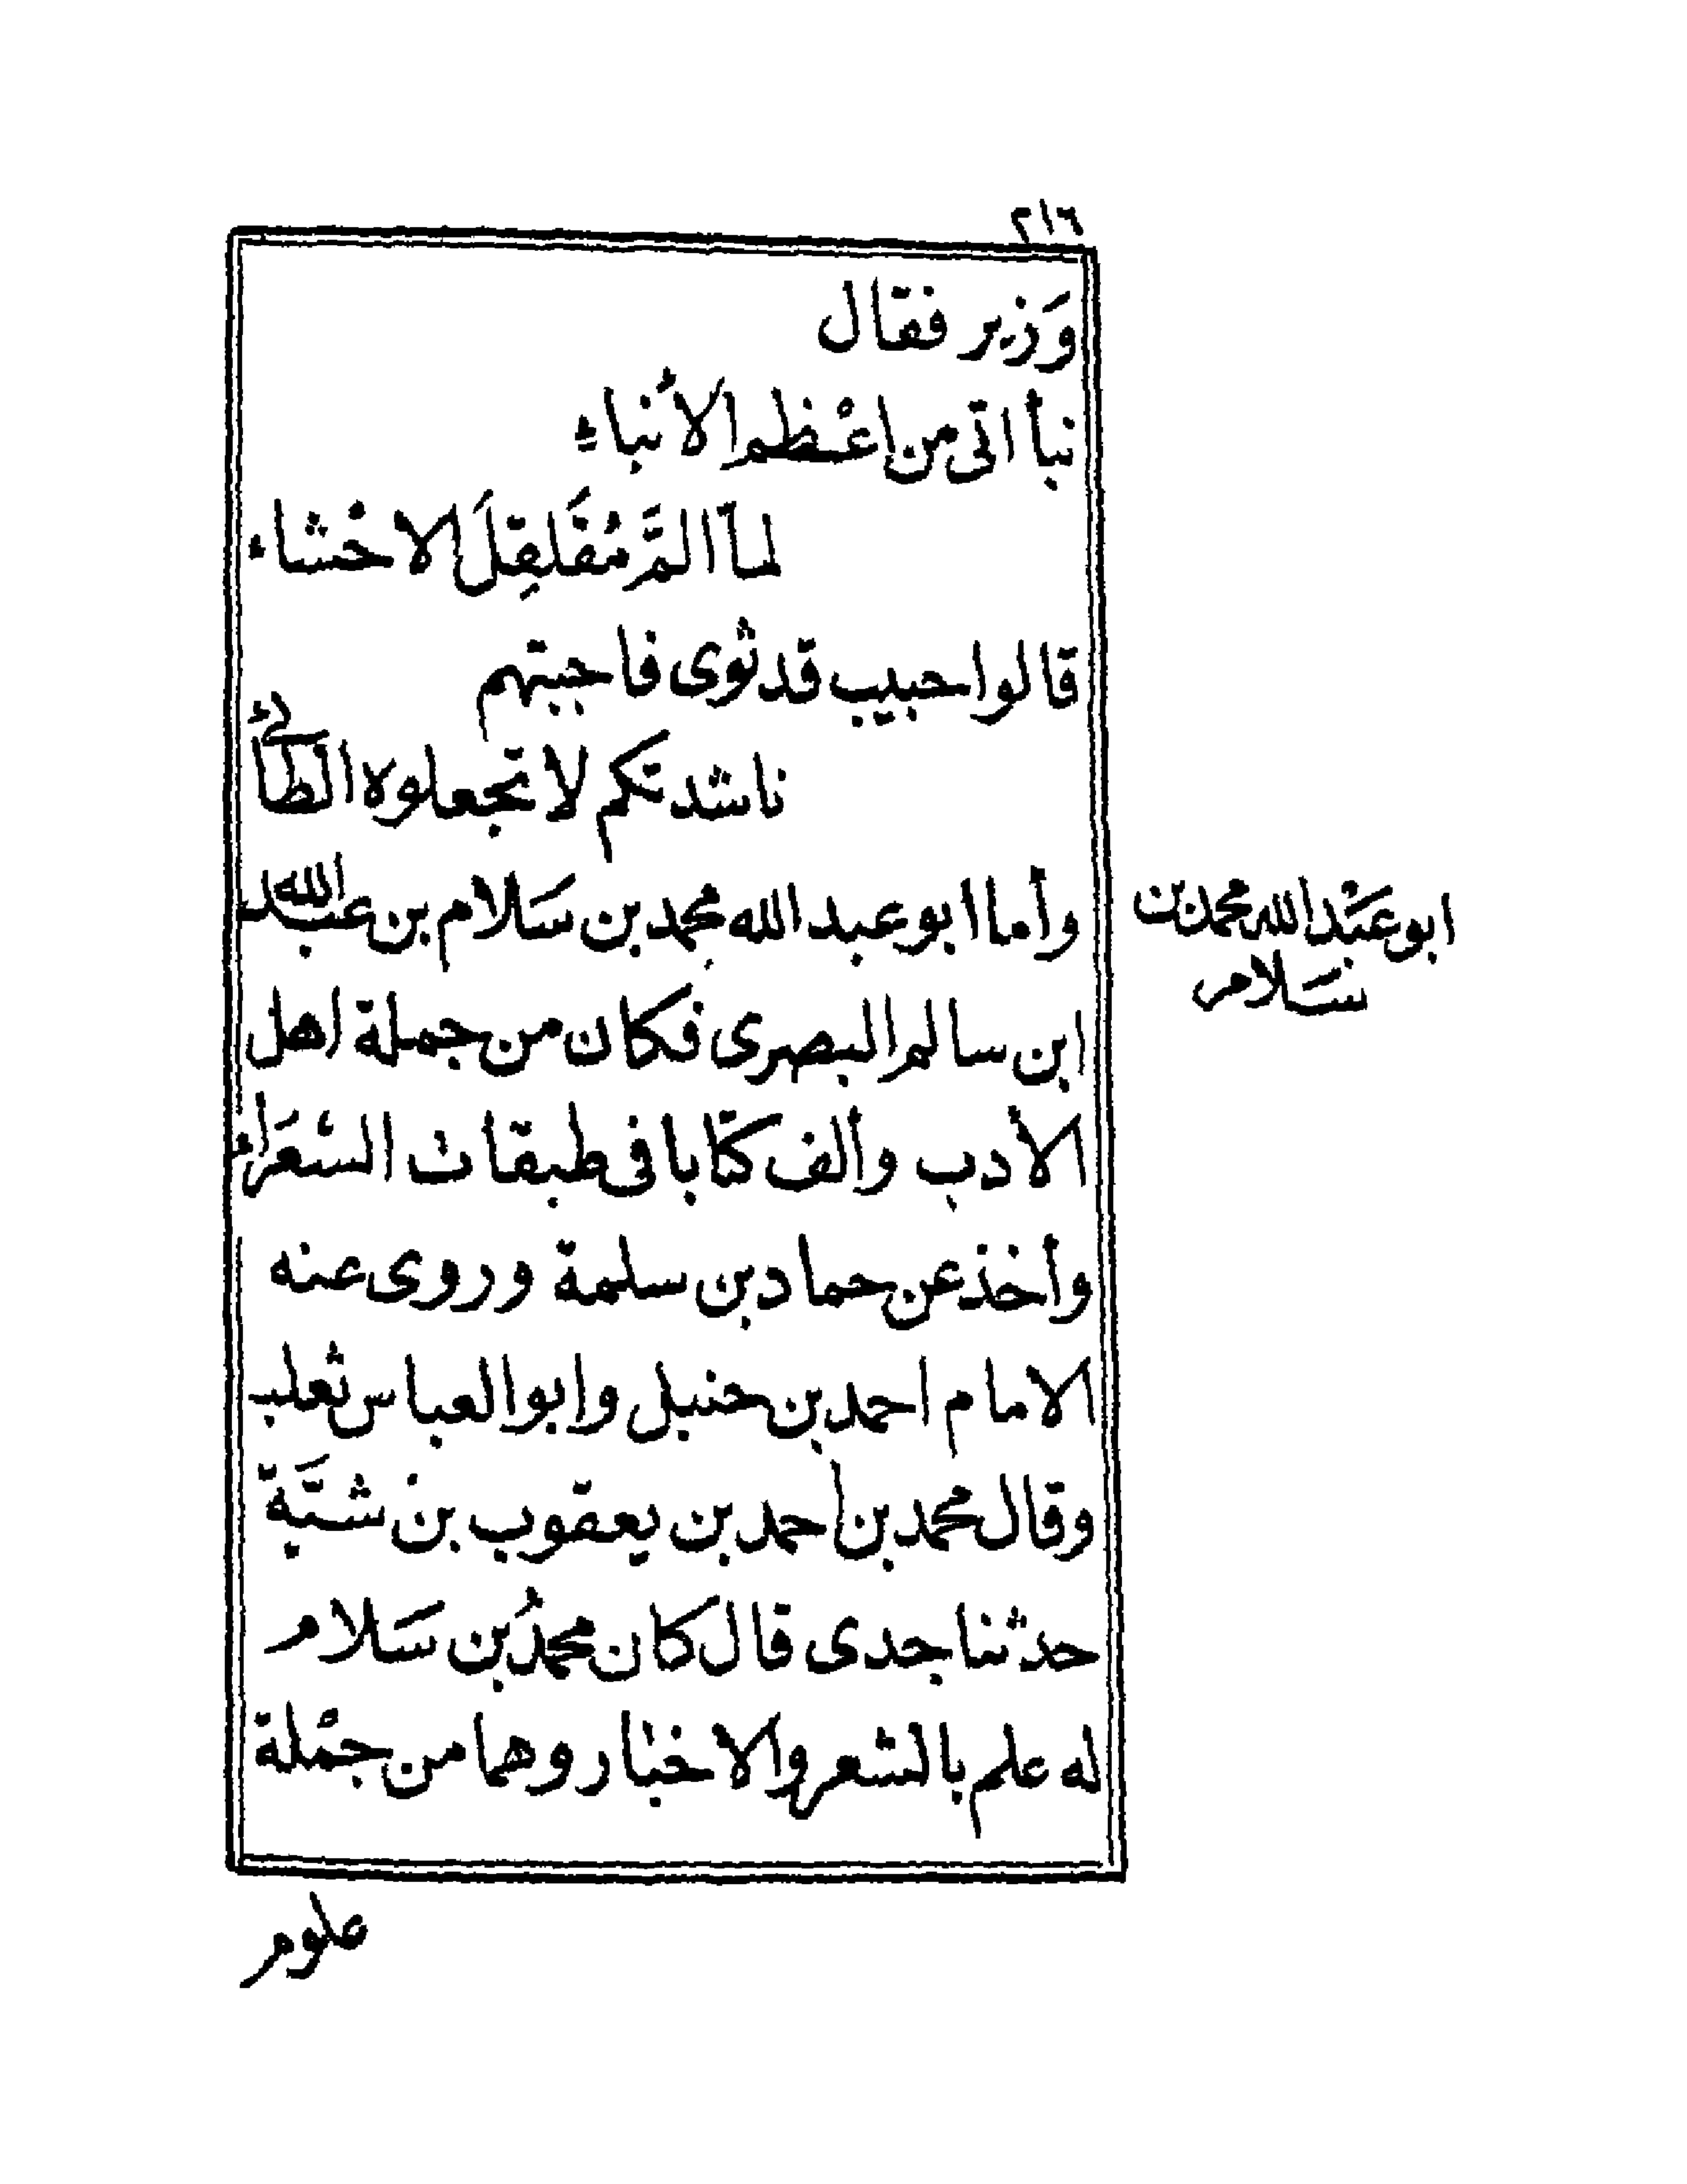 ٢١٦
وَزير فقال
نبأ اتى من اعْظم الأنباءِ
لمآ المَّ مُقَلقِلَ الاحْشاء
قالوا حبيب قد ثوى فاجبتهم
ناشدتكم لا تجعلوه الطائى
وأما ابو عبد الله محمد بن سَلام بن عبد الله
ابو عَبْد الله محمد بن
سَلام
ابن سالم البصرى فكان من جملة اهل
الأدب وألف كتابا فى طبقات الشعَراء
وأخذ عن حماد بن سلمة وروى عنه
الامام احمد بن حنبل وابو العباس ثعلب
وقال محمد بن احمد بن يعقوب بن شيَّبة
حدثنا جدى قال كان محمدُ بن سَلام
له علم بالشعر والاخبار وهما من جمْلة
علوم